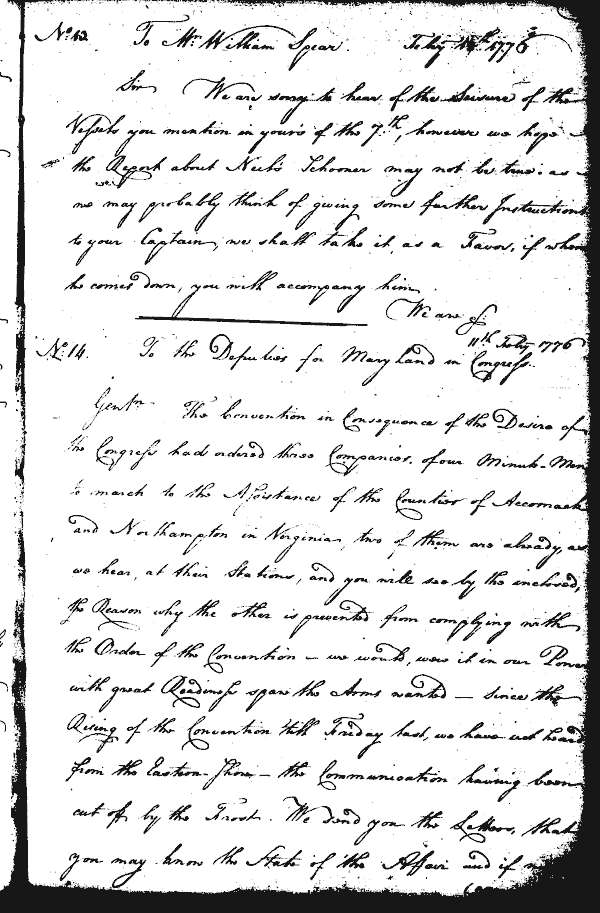 No. 13. To Mr. William Spear. Feby 1776
Sir We are sorry to hear of the Seisure of the
Vessels you mention in your's of the 7.th, however we hope
the Report about Neels Schooner may not be true. as
we may probably think of giving some farther Instructions
to your Captain, we shall take it as a Favor, if when
he comes down, you will accompany him
We are &c
No. 14. To the Deputies for Maryland in Congress. 11th Feby 1776
Gentn The Convention in Consequence of the Desire of
the Congress had ordered three Companies of our Minute-Men
to march to the Assistance of the Counties of Accomack
and Northampton in Virginia, two of them are already as
we hear, at their Stations, and you will see by the inclosed,
the Reason why the other is prevented from complying with
the Order of the Convention – we would, were it in our Power
with great Readiness spare the Arms wanted – since the
Rising of the Convention 'till Friday last, we have not heard
from the Eastern-Shore – the Communication having been
cut off by the Frost. We send you the Letters, that
you may know the State of the Affair and if